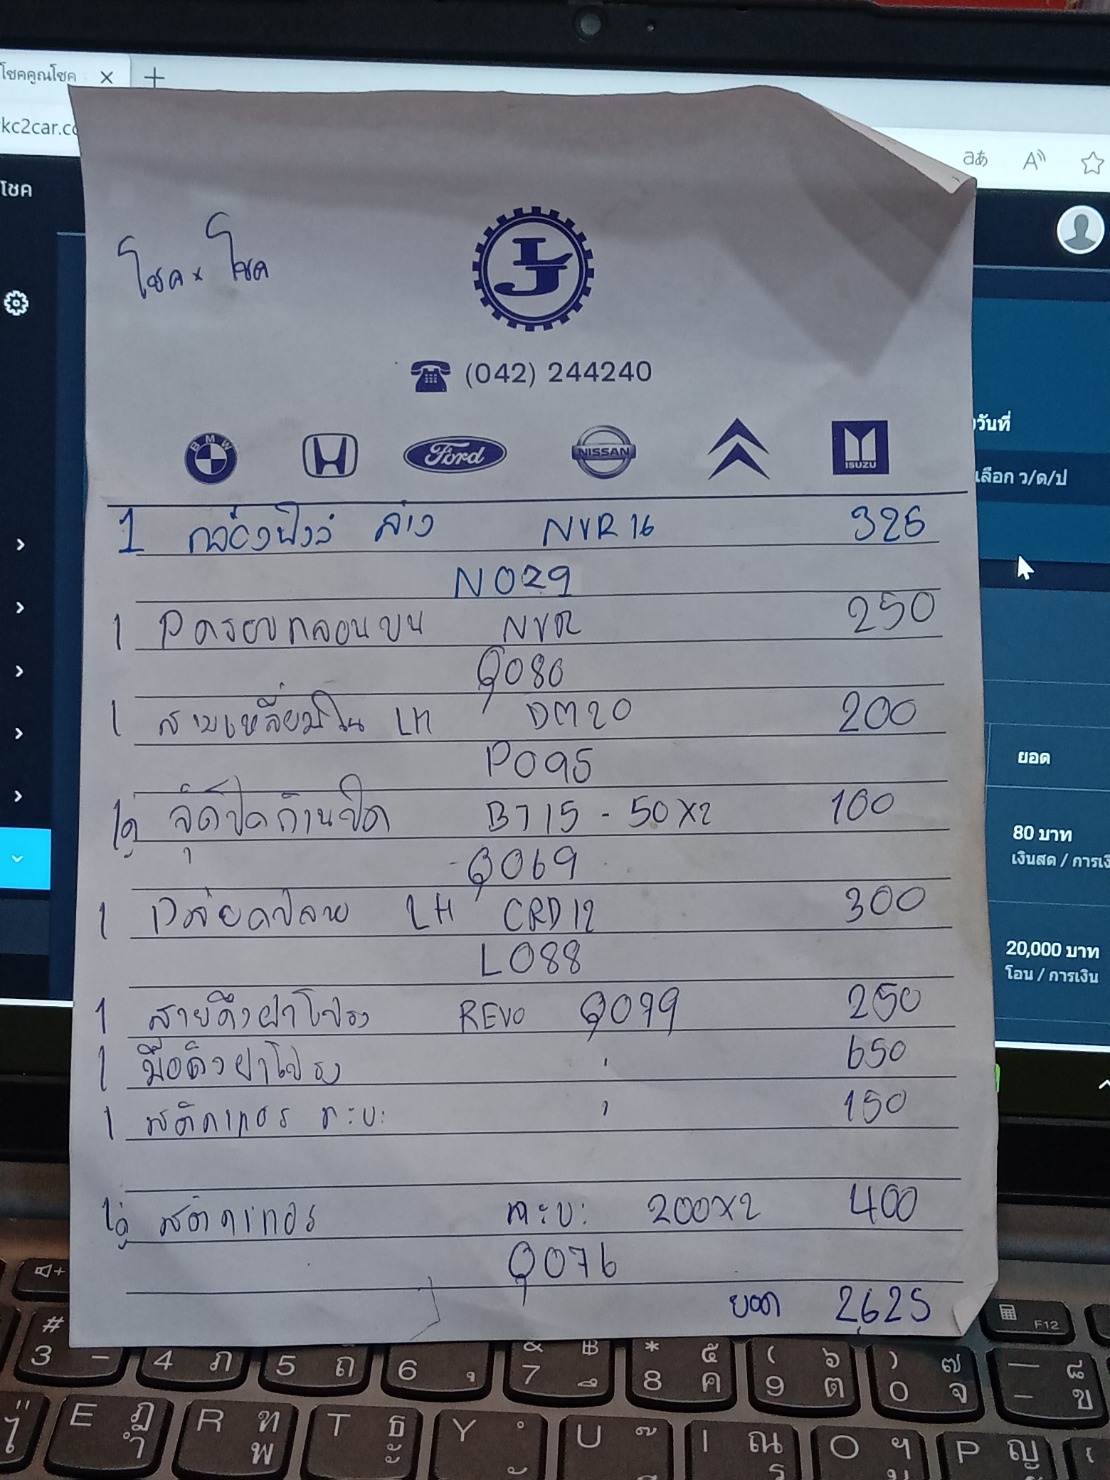 โชคคูณโชค × +
kc2car.cc
aあ A
โชค
โชค x โชค
LJ
(042) 244240
BMW Ford NISSAN ISUZU
วันที่
เลือก ว/ด/ป
1 กล่องฟิวส์ ล่าง NVR16 325
N029
1 ฝาครอบกลอนบน NVR 250
Q080
1 สามเหลี่ยมใน LH DM20 200
P095
1คู่ จุ๊ดปิดก้านปัด BT15 - 50X2 100
Q069
1 LH CRD12 300
L088
1 สายดึงฝาโปรง REVO Q079 250
1 มือดึงฝาโปรง " 650
1 สติกเกอร์ กะบะ " 150
1คู่ สติกเกอร์ กะบะ 200X2 400
Q076
ยอด 2,625
ยอด
80 บาท
เงินสด / การเงิ
20,000 บาท
โอน / การเงิน
# 3 - 4 ภ 5 ถ 6 & 7 ฿ * 8 ๕ ค ( 9 ๖ ต ) 0 ๗ จ — - ๘ ข F12
E ฎ ำ R ฑ พ T ธ ะ Y U I ณ ร O ฯ น P ญ ย